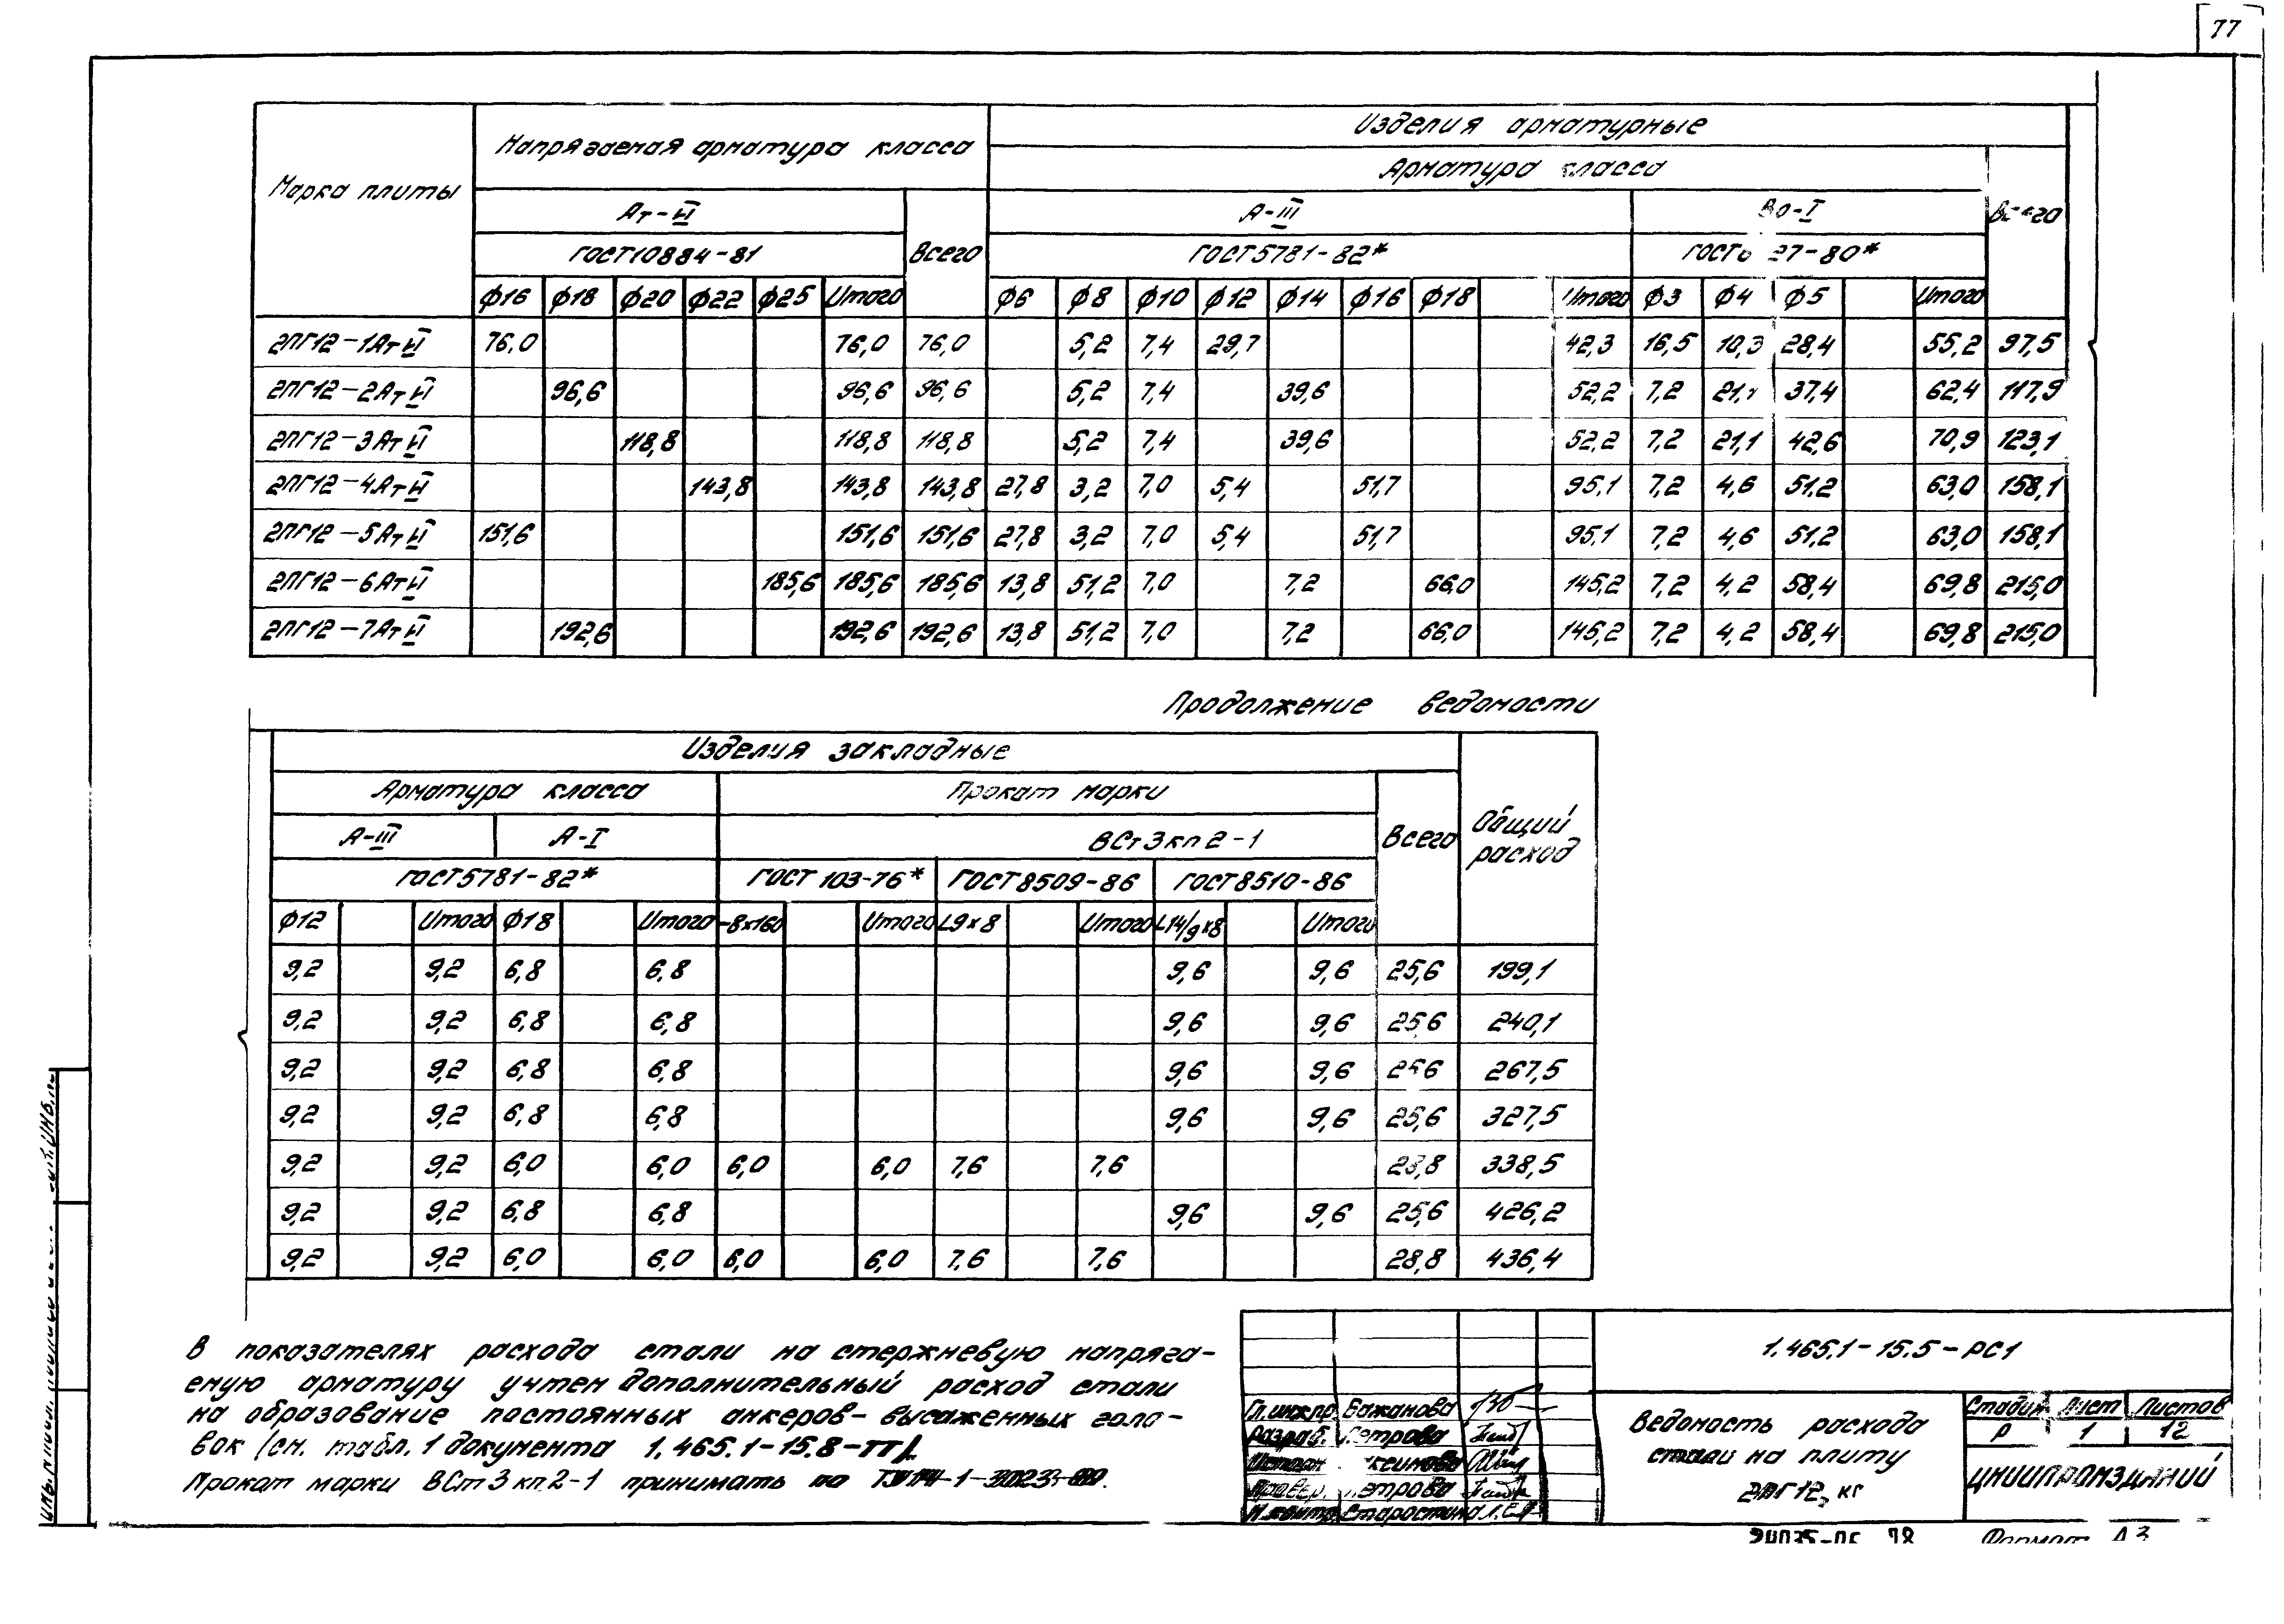 77
Марка плиты Напрягаемая арматура класса Изделия арматурные
Арматура класса Всего
Ат-VI Всего А-III Вр-I
ГОСТ10884-81 ГОСТ5781-82* 27-80*
ф16 ф18 ф20 ф22 ф25 Итого ф6 ф8 ф10 ф12 ф14 ф16 ф18 Итого ф3 ф4 ф5 Итого
2ПГ12-1АтVI 76,0 76,0 76,0 5,2 7,4 29,7 42,3 16,5 10,3 28,4 55,2 97,5
2ПГ12-2АтVI 96,6 96,6 96,6 5,2 7,4 39,6 52,2 7,2 37,4 62,4 117,9
2ПГ12-3АтVI 118,8 118,8 118,8 5,2 7,4 39,6 52,2 7,2 21,1 42,6 70,9 123,1
2ПГ12-4АтVI 143,8 143,8 143,8 27,8 3,2 7,0 5,4 51,7 95,1 7,2 4,6 51,2 63,0 158,1
2ПГ12-5АтVI 151,6 151,6 151,6 27,8 3,2 7,0 5,4 51,7 95,1 7,2 4,6 51,2 63,0 158,1
2ПГ12-6АтVI 185,6 185,6 185,6 13,8 51,2 7,0 7,2 66,0 145,2 7,2 4,2 58,4 69,8 215,0
2ПГ12-7АтVI 192,6 192,6 192,6 13,8 51,2 7,0 7,2 66,0 145,2 7,2 4,2 58,4 69,8 215,0
Продолжение ведомости
Изделия закладные Общий расход
Арматура класса Прокат марки Всего
А-III А-I ВСт3кп2-1
ГОСТ5781-82* ГОСТ 103-76* ГОСТ8509-86 ГОСТ8510-86
ф12 Итого ф18 Итого -8х160 Итого L9х8 Итого L14/9х8 Итого
9,2 9,2 6,8 6,8 9,6 9,6 25,6 199,1
9,2 9,2 6,8 6,8 9,6 9,6 25,6 240,1
9,2 9,2 6,8 6,8 9,6 9,6 25,6 267,5
9,2 9,2 6,8 6,8 9,6 9,6 25,6 327,5
9,2 9,2 6,0 6,0 6,0 6,0 7,6 7,6 28,8 338,5
9,2 9,2 6,8 6,8 9,6 9,6 25,6 426,2
9,2 9,2 6,0 6,0 6,0 6,0 7,6 7,6 28,8 436,4
В показателях расхода стали на стержневую напряга-
емую арматуру учтен дополнительный расход стали
на образование постоянных анкеров-высаженных голо-
вок (см. табл. 1 документа 1.465.1-15.8-ТТ).
Прокат марки ВСт3кп2-1 принимать по ТУ14-1-3023-80.
1.465.1-15.5-РС1
Гл.инж.пр. Бажанова
Разраб. Петрова
Провер. Петрова
Н.контр. Старостина
Ведомость расхода
стали на плиту
2ПГ12, кг
Стадия Лист Листов
Р 1 12
ЦНИИПРОМЗДАНИЙ
Формат А3